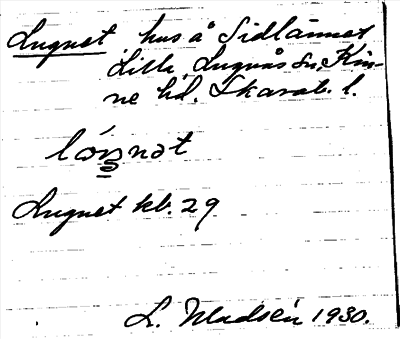 Lugnet hus å Sidlännet
Lilla, Lugnås sn, Kin-
ne hd. Skarab. l.
Lugnet kb. 29
L. Madsén 1930.